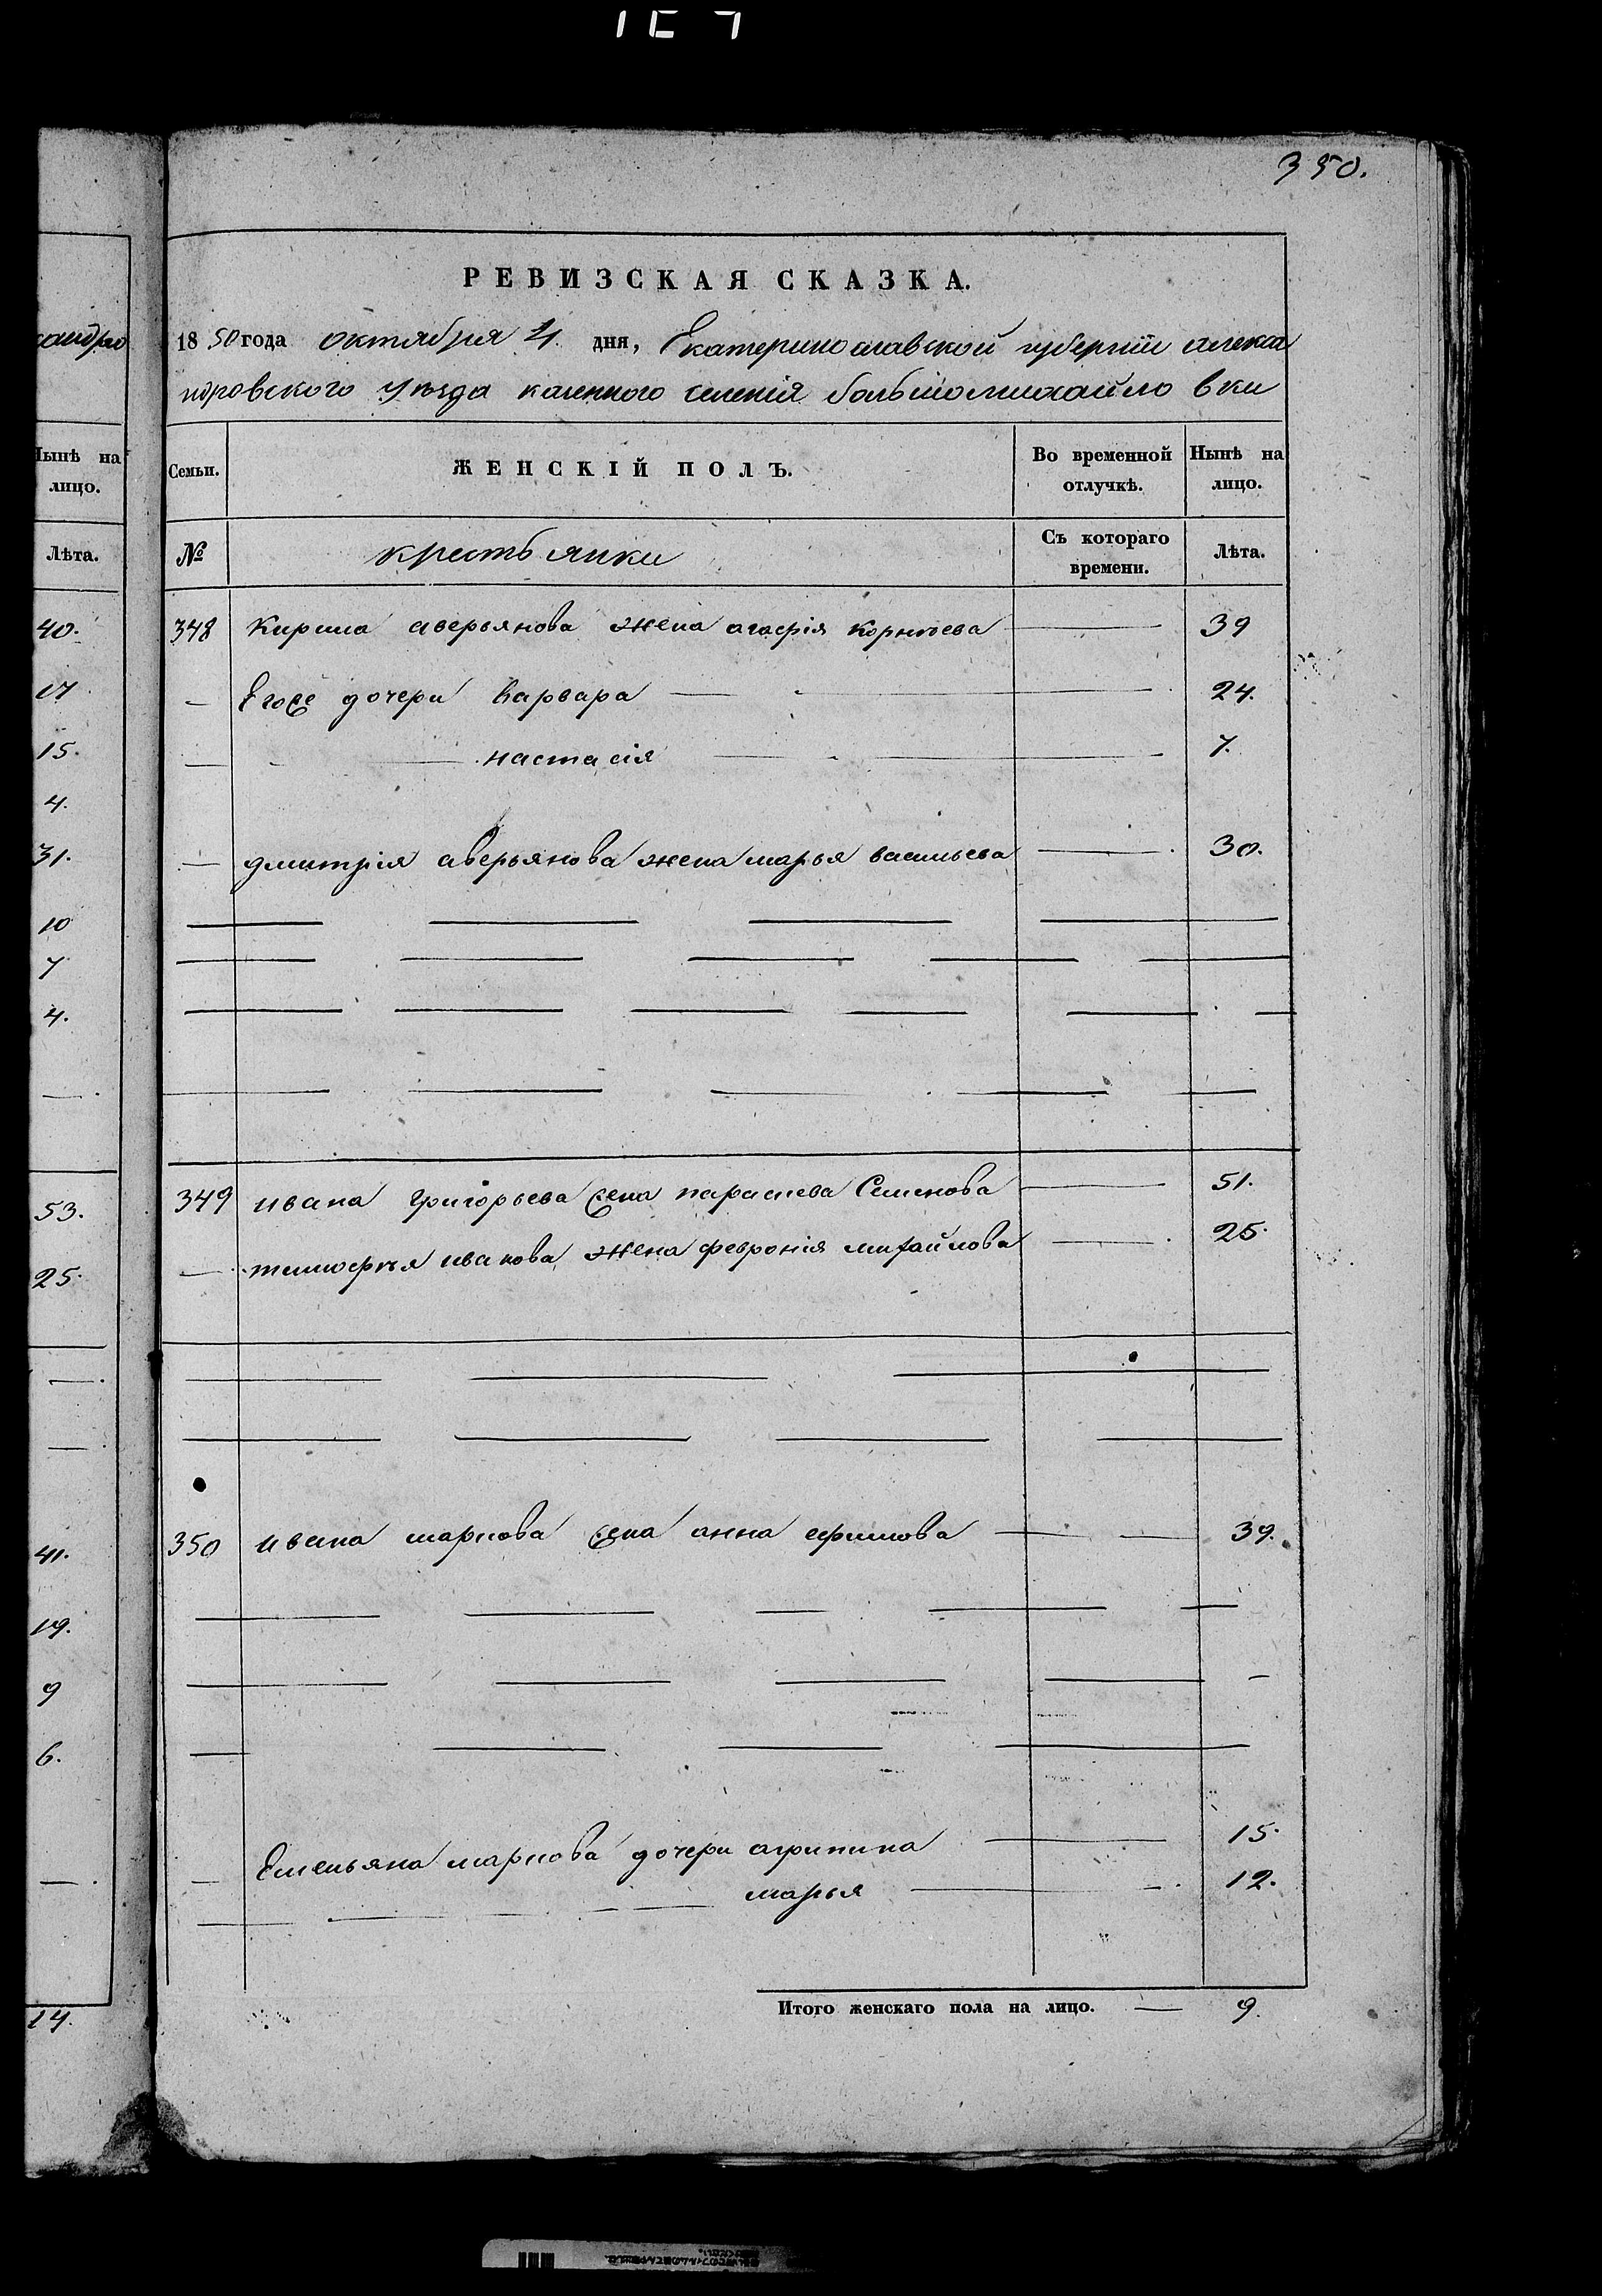 350.
РЕВИЗСКАЯ СКАЗКА.
1850 года октября 4 дня, Екатеринославской губернiи алекса
ндровского уезда казенного селенiя большомихайловки
Семьи.
ЖЕНСКIЙ ПОЛЪ.
Во временной отлучкѣ.
Нынѣ на лицо.
№
крестьянки
Съ котораго времени.
Лѣта.
348 Кирила аверьянова жена агафiя корнѣева 39
Егоже дочери варвара 24.
настасiя 7.
дмитрiя аверьянова жена марья васильева 30.
349 ивана григорьева жена параскева Семенова 51.
тимофѣя иванова жена февронiя михайлова 25.
350 ивана маркова жена анна ефимова 39.
Емельяна маркова дочери агрипина 15.
марья 12.
Итого женскаго пола на лицо. 9.
Нынѣ на
лицо.
Лѣта.
40.
17
15.
4.
31.
10
7
4.
53.
25.
41.
19.
9
6.
14.